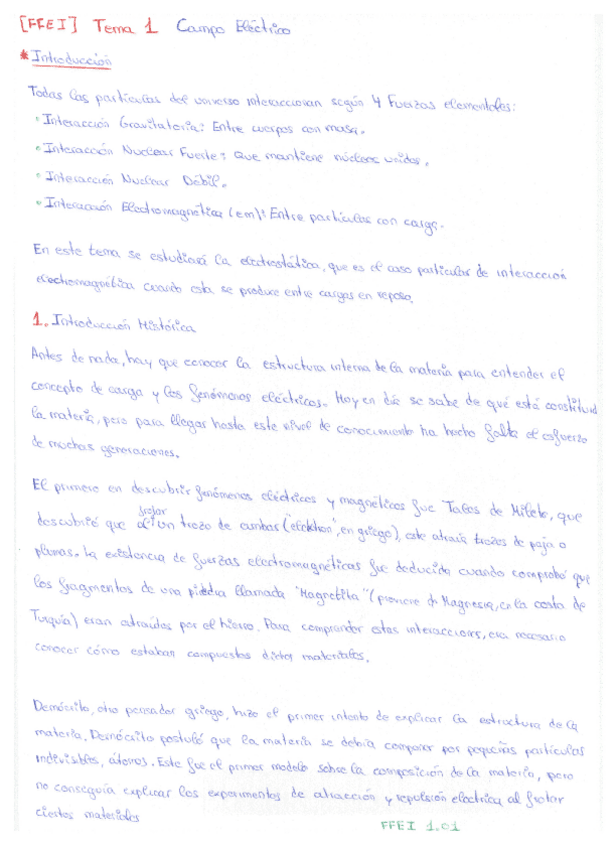 [FFEI] Tema 1 Campo Eléctrico
* Introducción
Todas las partículas del universo interaccionan según 4 Fuerzas elementales:
• Interacción Gravitatoria: Entre cuerpos con masa.
• Interacción Nuclear Fuerte: Que mantiene núcleos unidos.
• Interacción Nuclear Débil.
• Interacción Electromagnética (em): Entre partículas con carga.
En este tema se estudiará la electrostática, que es el caso particular de interacción
electromagnética cuando esta se produce entre cargas en reposo.
1. Introducción Histórica
Antes de nada, hay que conocer la estructura interna de la materia para entender el
concepto de carga y los fenómenos eléctricos. Hoy en día se sabe de qué está constituid
la materia, pero para llegar hasta este nivel de conocimiento ha hecho falta el esfuerzo
de muchas generaciones.
El primero en descubrir fenómenos eléctricos y magnéticos fue Tales de Mileto, que
descubrió que al frotar un trozo de ambar ("elektron", en griego), este atraía trozos de paja o
plumas. La existencia de fuerzas electromagnéticas fue deducida cuando comprobó que
los fragmentos de una piedra llamada "Magnetita" (proviene de Magnesia, en la costa de
Turquía) eran atraídos por el hierro. Para comprender estas interacciones, era necesario
conocer cómo estaban compuestos dichos materiales.
Demócrito, otro pensador griego, hizo el primer intento de explicar la estructura de la
materia. Demócrito postuló que la materia se debía componer por pequeñas partículas
indivisibles, átomos. Este fue el primer modelo sobre la composición de la materia, pero
no conseguía explicar los experimentos de atracción y repulsión eléctrica al frotar
ciertos materiales
FFEI 1.01